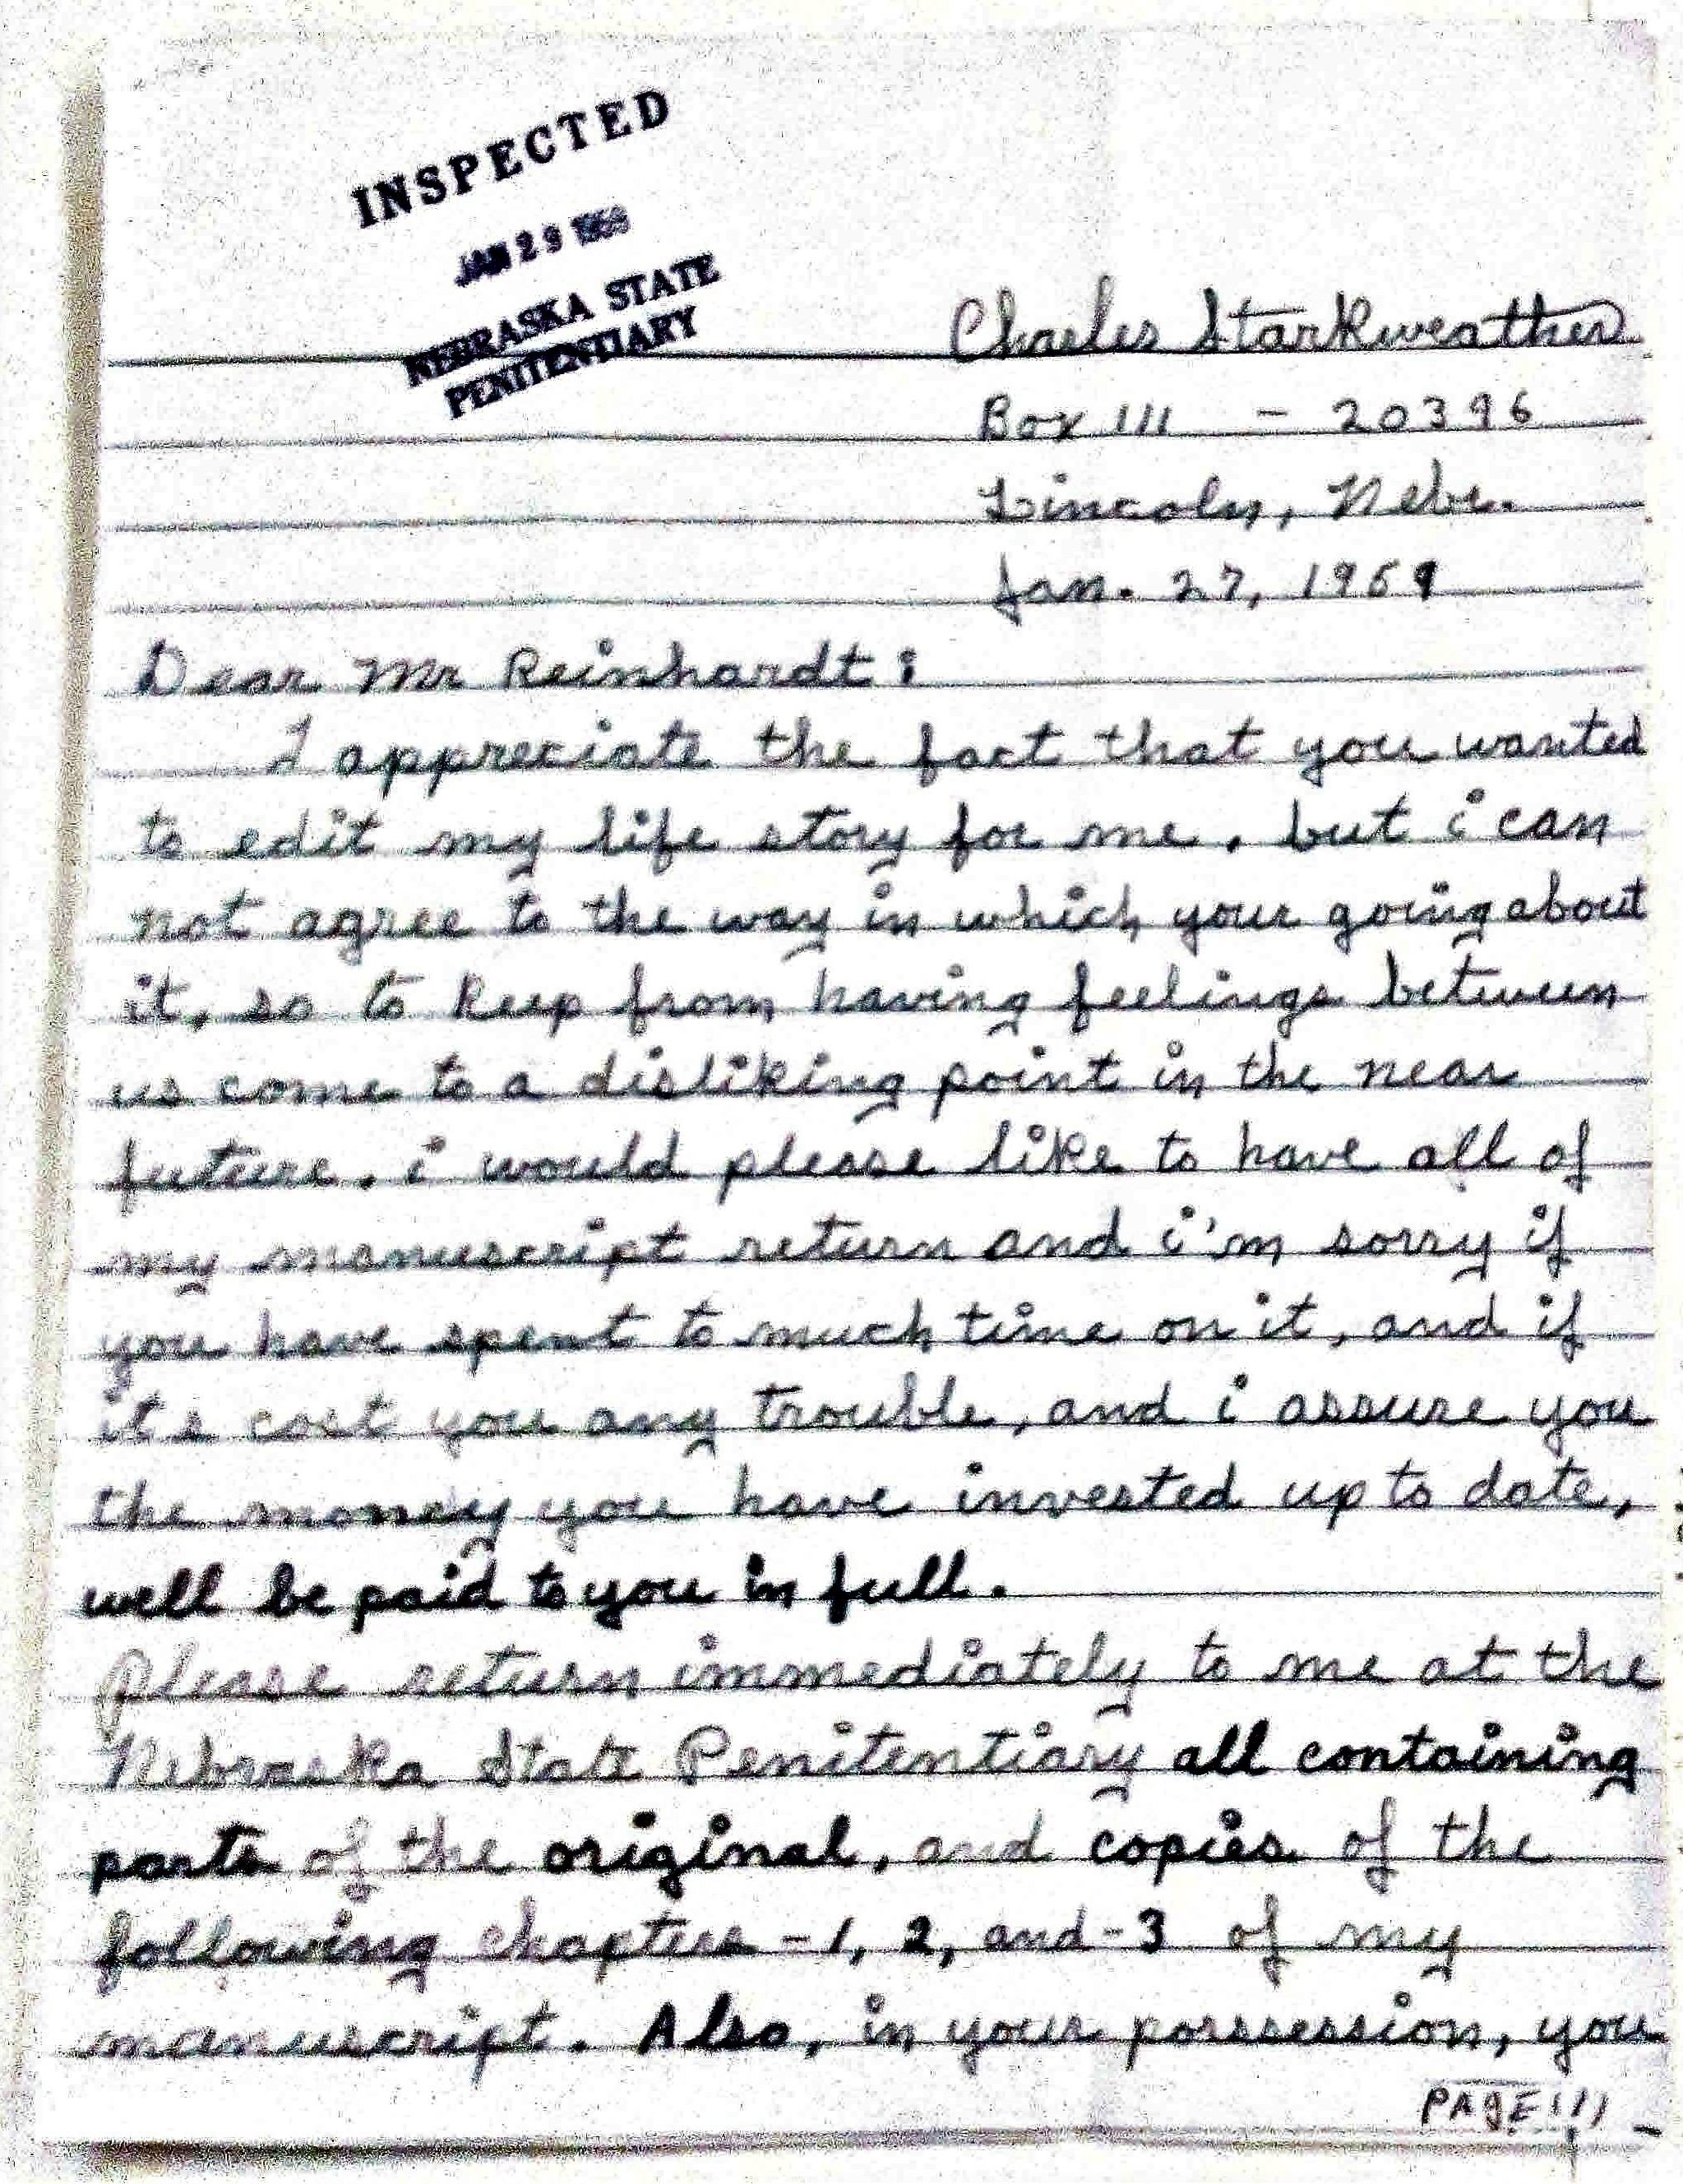 INSPECTED
JAN 29 1959
NEBRASKA STATE
PENITENTIARY
Charles Starkweather
Box 111 - 20396
Lincoln, Nebr.
Jan. 27, 1959
Dear Mr Reinhardt:
I appreciate the fact that you wanted
to edit my life story for me, but i can
not agree to the way in which your going about
it, so to keep from having feelings between
us come to a disliking point in the near
future. i would please like to have all of
my manuscript return and i'm sorry if
you have spent to much time on it, and if
it's cost you any trouble, and i assure you
the money you have invested up to date,
well be paid to you in full.
Please return immediately to me at the
Nebraska State Penitentiary all containing
parts of the original, and copies of the
following chapters - 1, 2, and - 3 of my
manuscript. Also, in your porssession, you
PAGE